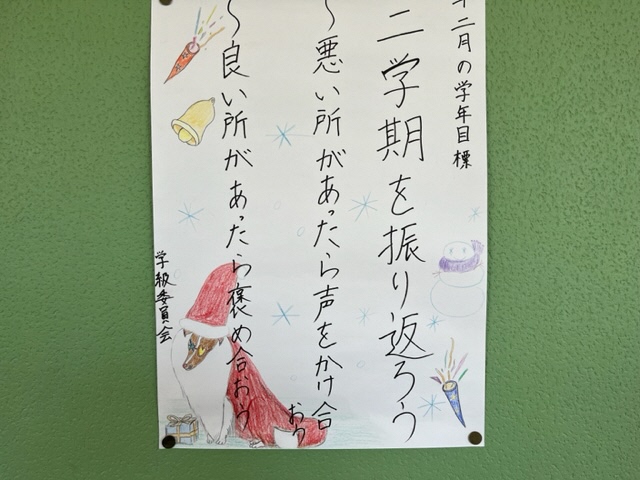 十二月の学年目標
二学期を振り返ろう
〜悪い所があったら声をかけ合おう
〜良い所があったら褒め合おう
学級委員会